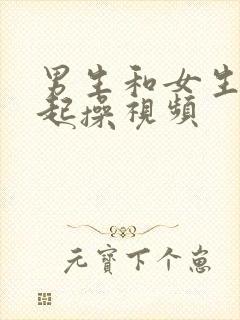 男生和女生
起操視頻
元寶下个崽